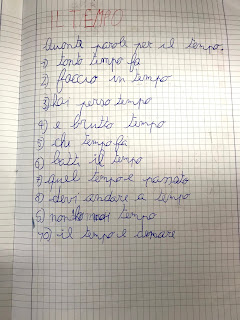 IL TEMPO
Quante parole per il tempo.
1) tanto tempo fa
2) faccio in tempo
3) hai perso tempo
4) e brutto tempo
5) che tempo fa
6) batti il tempo
7) quel tempo e passato
8) devi andare a tempo
9) non ho mai tempo
10) il tempo è denare